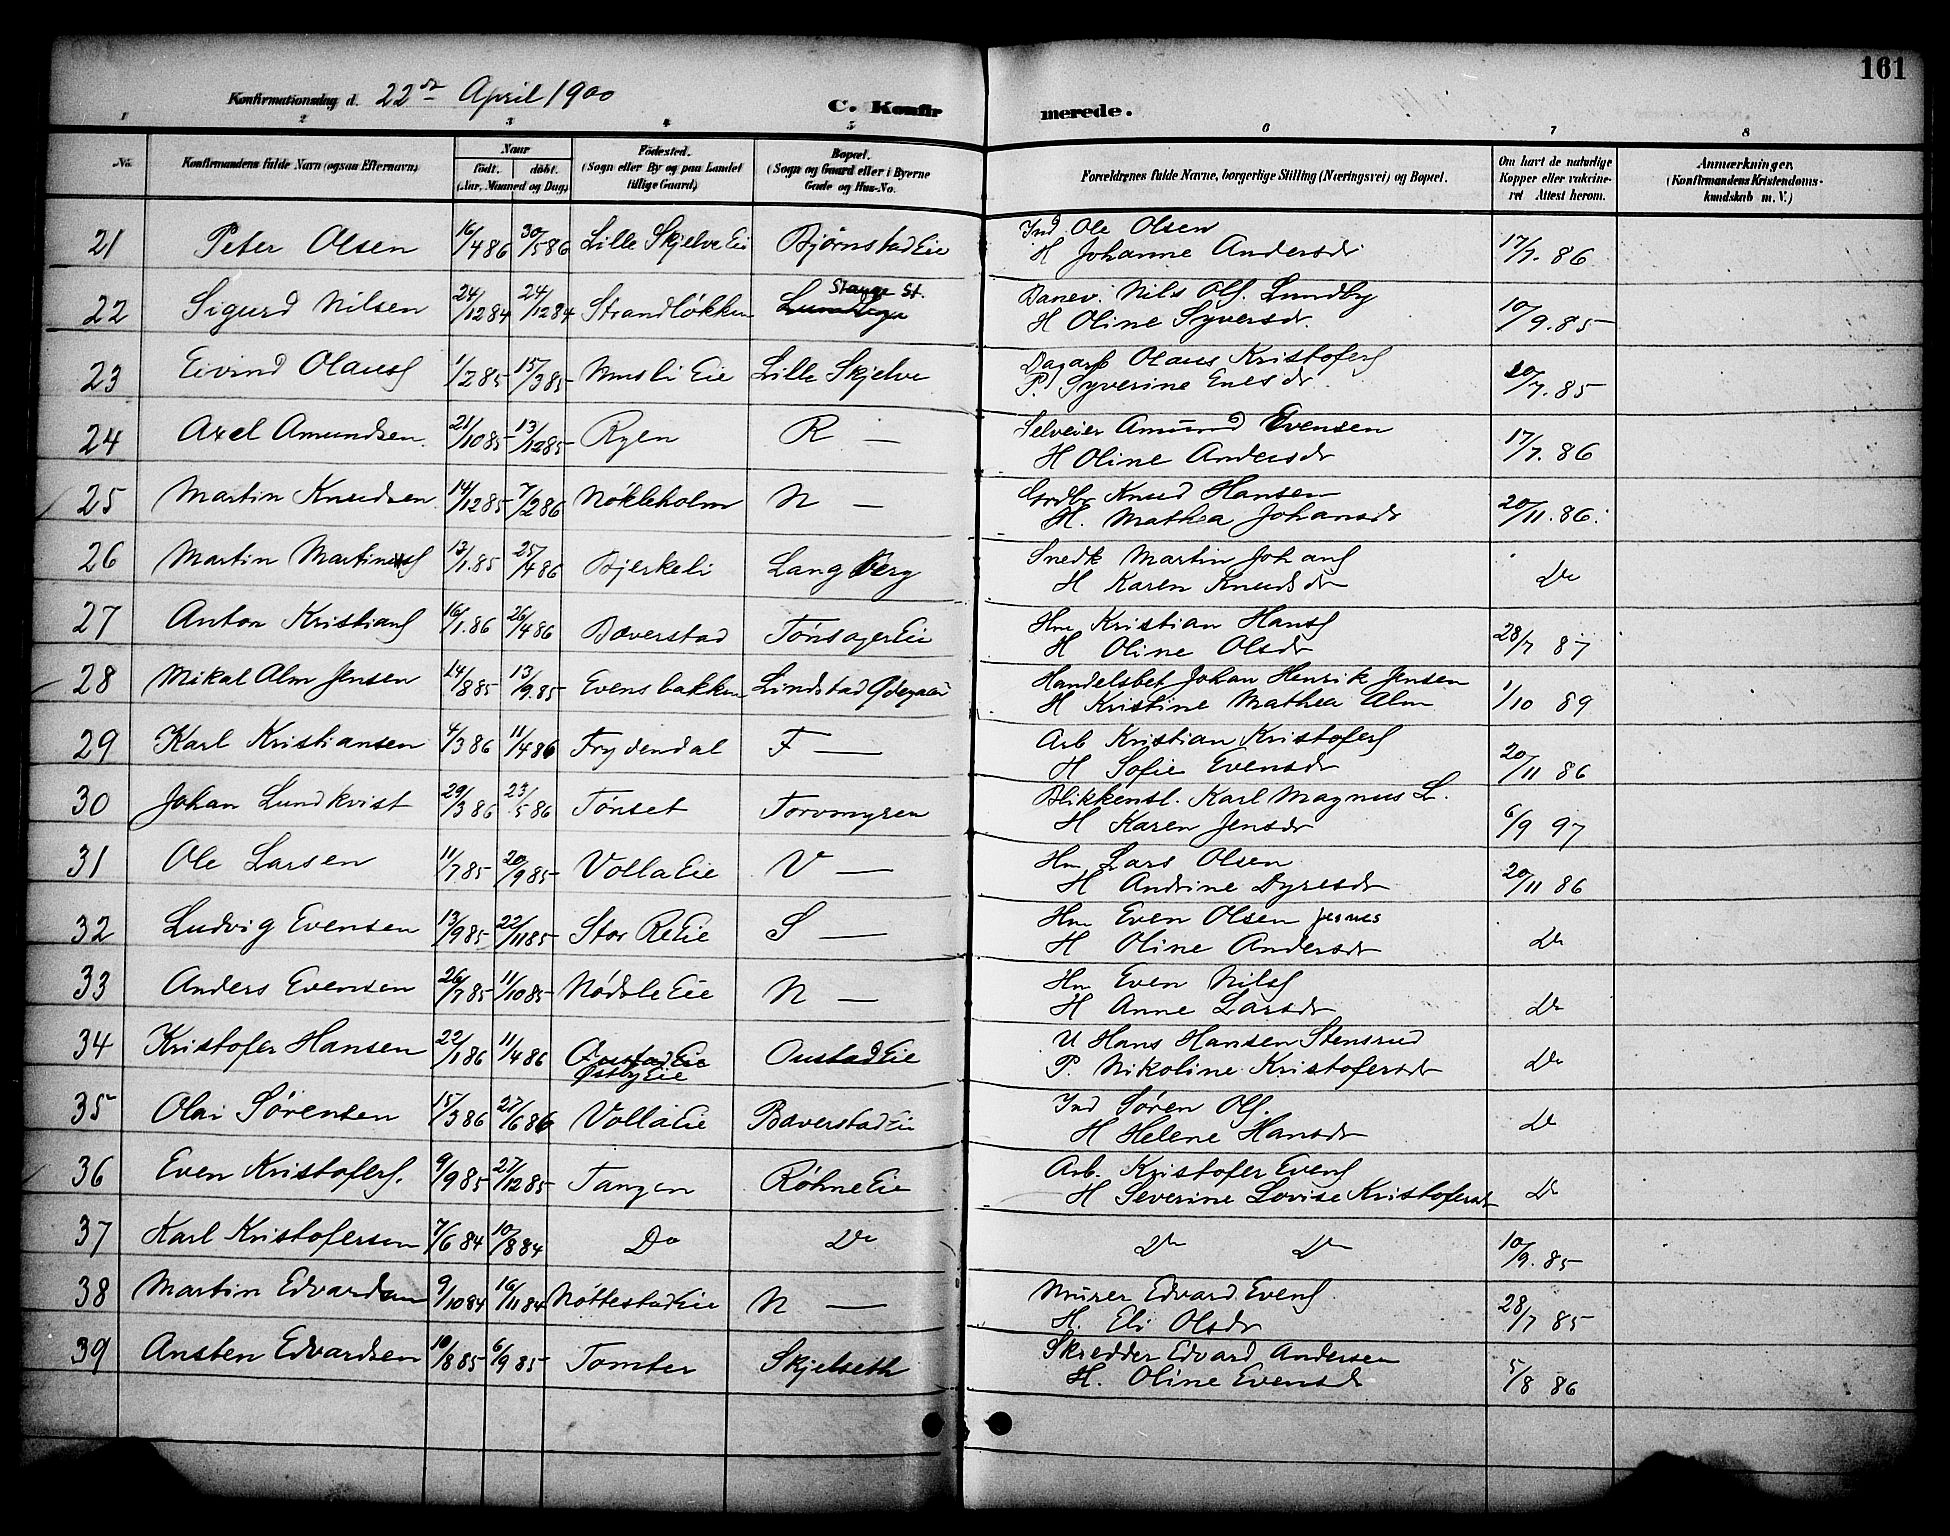 161
Konfirmationsdag d. 22de April 1900
C. Konfirmerede.
1 2 3 4 5 6 7 8
No. Konfirmandens fulde Navn (ogsaa Efternavn) Naar født. døbt. (Aar, Maaned og Dag) Fødested. (Sogn eller By og paa Landet tillige Gaard) Bopæl. (Sogn og Gaard eller i Byerne Gade og Hus-No. Forældrenes fulde Navne, borgerlige Stilling (Næringsvei) og Bopæl. Om havt de naturlige Kopper eller vaccineret Attest herom. Anmærkninger. (Konfirmandens Kristendomskundskab m. V.)
21 Peter Olsen 16/4 86 30/5 86 Lille Skjelve Eie Bjørnstad Eie Ind Ole Olsen
H Johanne Andersdr 17/7. 86
22 Sigurd Nilsen 24/12 84 24/12 84 Strandløkken Stange St. Banev. Nils Ols. Lundby
H Oline Syversdr. 10/9. 85
23 Eivind Olaus 1/2 85 15/3 85 Eie Lille Skjelve Dagarb Olaus Kristofers
P. Syverine 20/7. 85
24 Axel Amundsen 21/10 85 13/12 85 Ryen R — Selveier Amund Evensen
H Oline Andersdr 17/7. 86
25 Martin Knudsen 14/12 85 7/2 86 Nøkleholm N — Grdbr Knud Hansen
H. Mathea Johansdr 20/11. 86.
26 Martin Martins 13/1. 85 25/4 86 Bjerkeli Lang Berg Snedk Martin Johans
H Karen Knudsdr Do
27 Anton Kristians 16/1. 86 26/4 86 Bæverstad Tønsager Eie Hm Kristian Hans
H Oline Olsdr 28/7 87
28 Mikal Alm Jensen 14/8 85 13/9. 85 Evensbakken Lindstad Ødegaard Handelsbet Johan Henrik Jensen
H Kristine Mathea Alm 1/10 89
29 Karl Kristiansen 4/3 86 11/4 86 Frydendal F — Arb Kristian Kristofers
H Sofie Evensdr 20/11 86
30 Johan Lundkvist 29/3 86 23/5 86 Tønset Torvmyren Blikkensl. Karl Magnus L.
H Karen Jensdr 6/9 97
31 Ole Larsen 11/7 85 20/9 85 Volla Eie V — Hm Lars Olsen
H Andrine Dyresdr 20/11 86
32 Ludvig Evensen 13/9 85 22/11 85 Stor Re Eie S — Hm Even Olsen
H Oline Andersdr Do
33 Anders Evensen 26/7 85 11/10 85 Nødsle Eie N — Hm Even Nils
H Anne Larsdr Do
34 Kristofer Hansen 22/1 86 11/4 86 Oustad Eie Østby Eie Oustad Eie U Hans Hansen Stensrud
P. Nikoline Kristofersdr Do
35 Olai Sørensen 15/3 86 27/6 86 Volla Eie Bæverstad Eie Ind Søren Ols.
H Helene Hansdr Do
36 Even Kristofers. 9/9 85 27/12 85 Tangen Røhne Eie Arb. Kristofer Evens
H Severine Lovise Kristofersdr Do
37 Karl Kristofersen 7/6 84 10/8 84 Do Do Do Do 10/9. 85
38 Martin Edvardsen 9/10 84 16/11 84 Nøttestad Eie N — Murer Edvard Evens
H. Eli Olsdr 28/7 85
39 Ansten Edvardsen 10/8 85 6/9 85 Tomter Skjelseth Skredder Edvard Andersen
H. Oline Evensdr 5/8 86